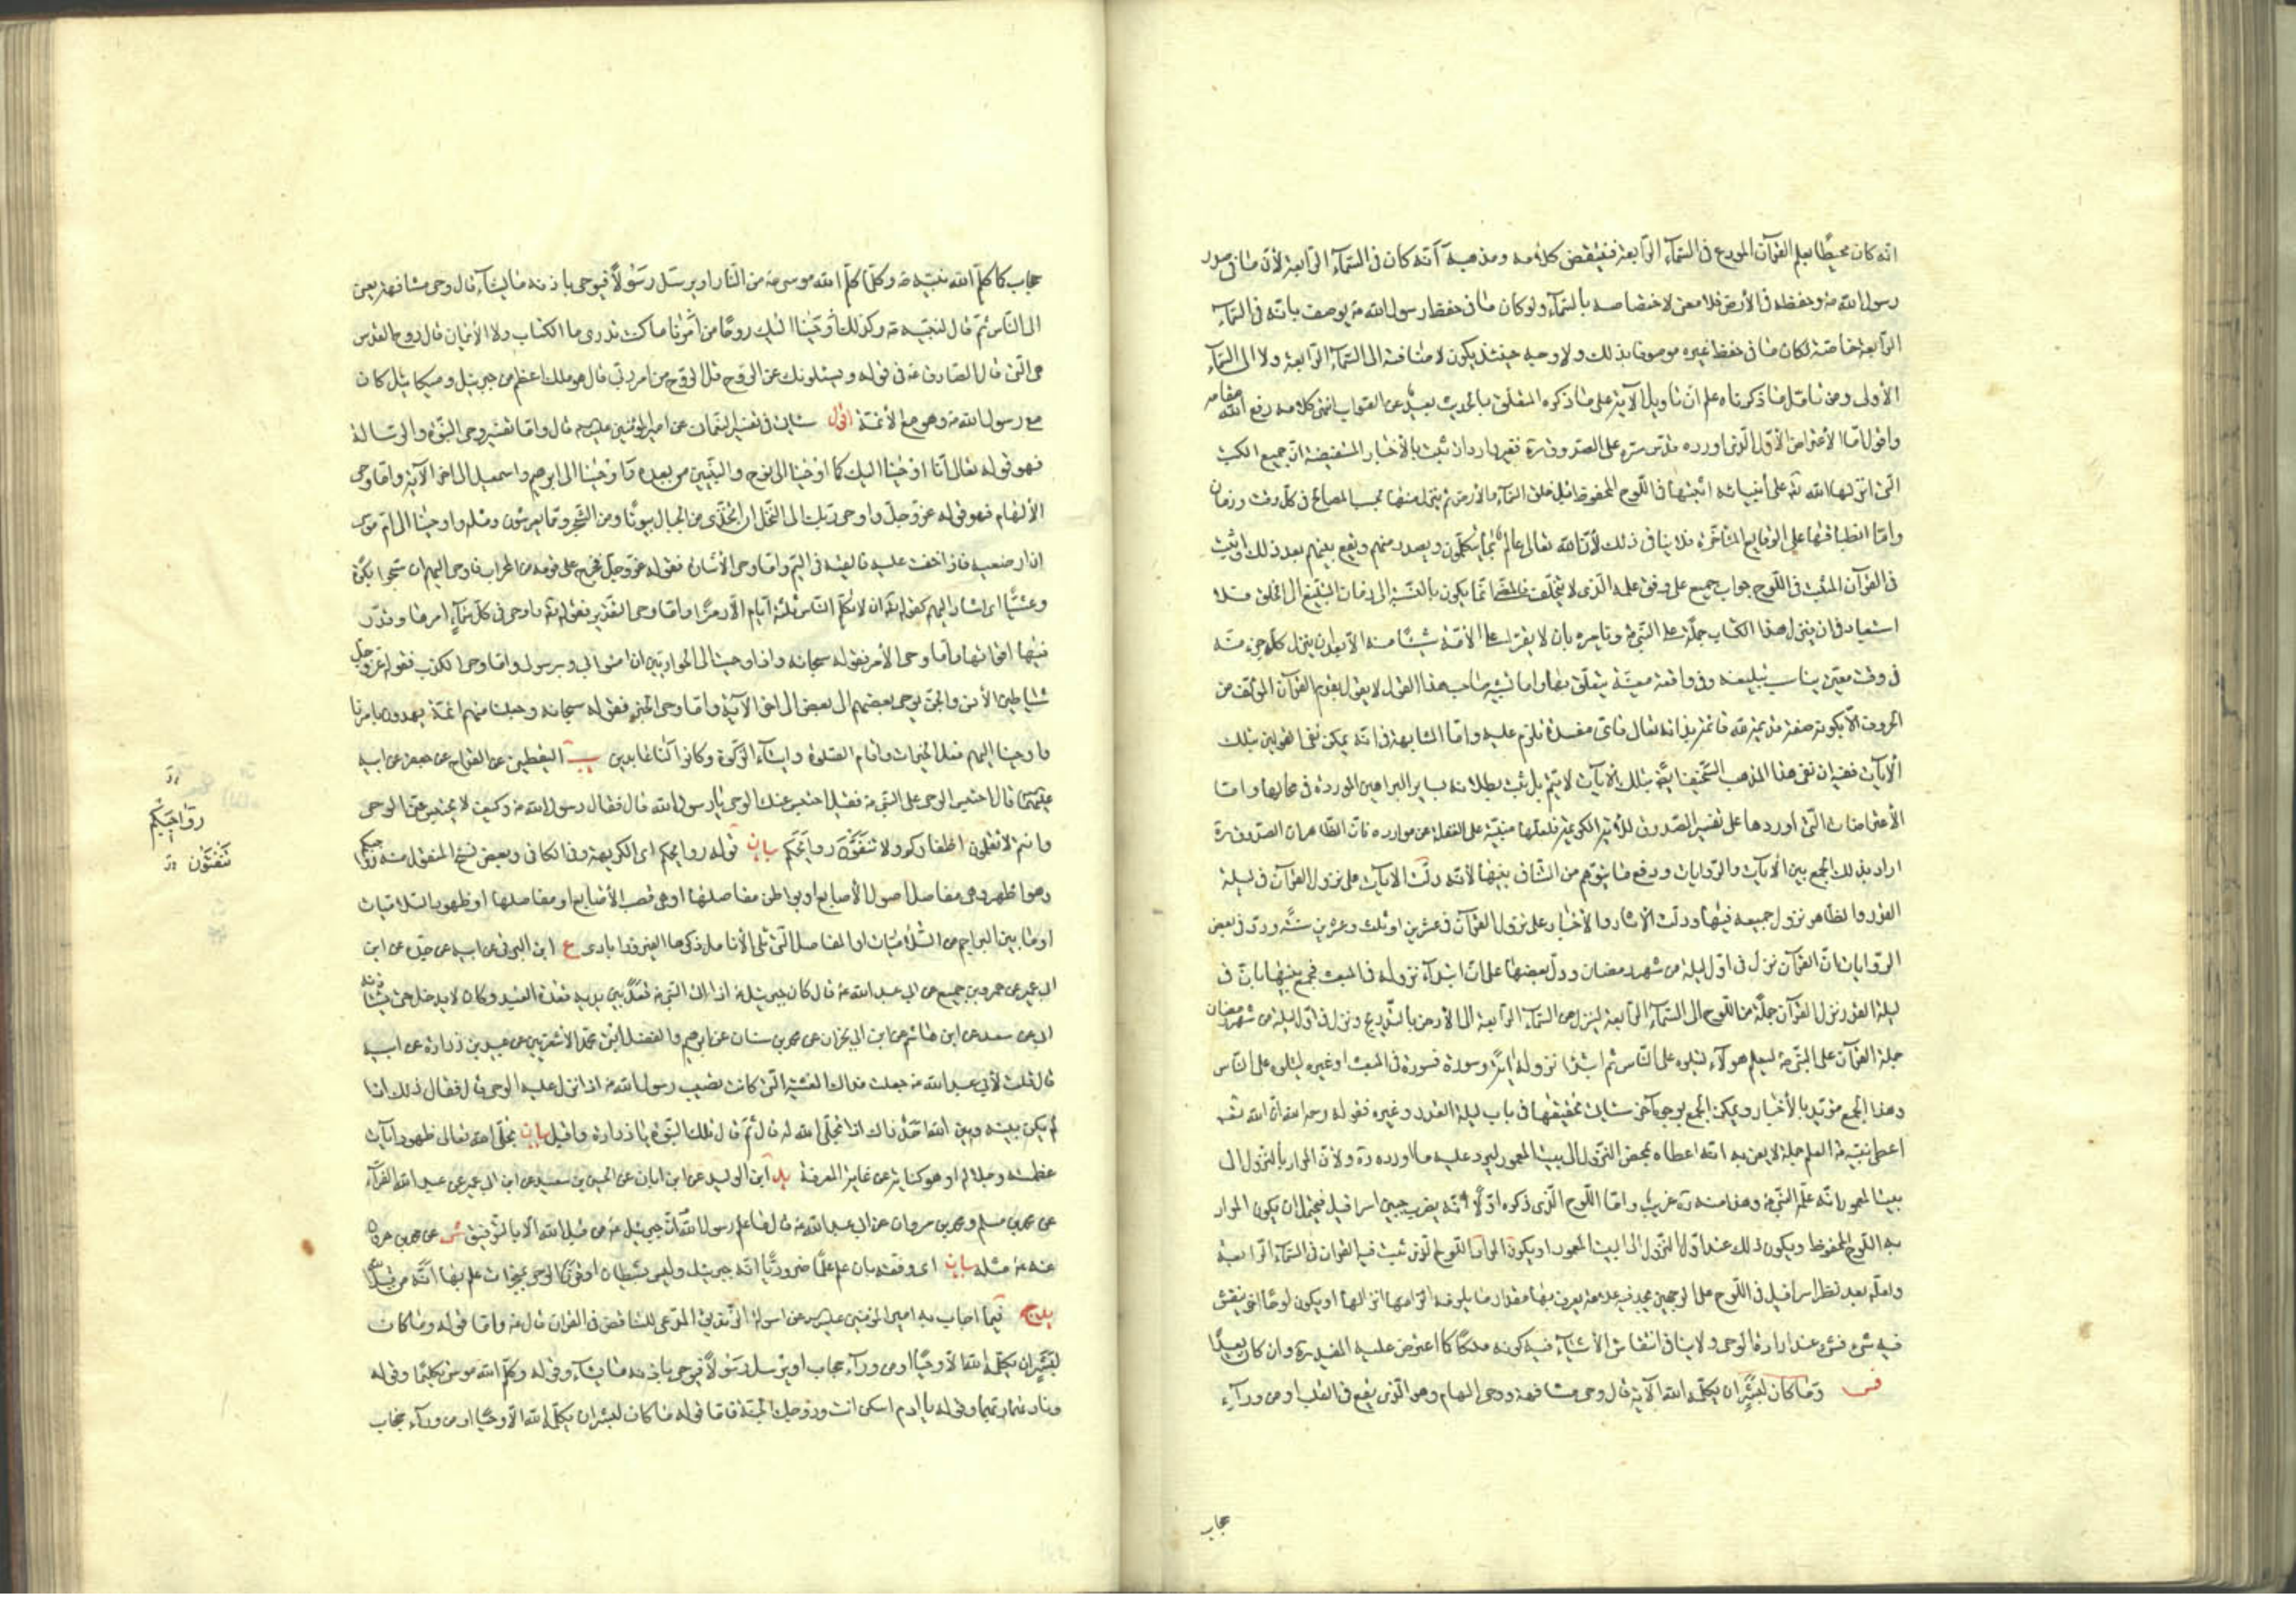 انه كان محيطا بعلم القرآن المودع في السمآء الرابعة فينتقض كلامه ومذهبه آ انه كان في السمآء الرابعة لأن ما في صدر
رسول الله ص وحفظه في الأرض فلا معنى لاختصاصه بالسمآء ولو كان ما في حفظ رسول الله ص يوصف بانه في السمآء
الرابعة خاصة لكان ما في حفظ غيره موصوفا بذلك ولا وجه حينئذ يكون لاضافته الى السمآء الرابعة ولا الى السمآء
الأولى ومن تأمل ما ذكرناه علم ان تأويل الآية على ما ذكره المتعلق بالحديث بعيد عن الصواب انتهى كلامه رفع الله مقامه
واقول اما الاعتراض الأول الذي اورده قدس سره على الصدوق ره فغير وارد اذ ثبت بالأخبار المستفيضة ان جميع الكتب
التي انزلها الله تع على أنبيائه اثبتها في اللوح المحفوظ قبل خلق السمآء والأرض ثم ينزل منها بحسب المصالح في كل وقت وزمان
واما انطباقها على الوقايع المتأخرة فلا ينافي ذلك لأن الله تعالى عالم بما يتكلمون ويصدر منهم ويقع بينهم بعد ذلك اثبت
في القرآن المثبت في اللوح جواب جميع على وفق علمه الذي لا يتخلف فالمضي انما يكون بالنسبة الى زمان التبليغ الى الخلق فلا
استبعاد في ان ينزل هذا الكتاب جملة على النبي ص ويأمره بان لا يقرأ على الأمة شيئا منه الا بعد ان ينزل كل جزء منه
في وقت معين يناسب تبليغه وفي واقعة معينة يتعلق بها واما تشبيه صاحب هذا القول لا يقول بقدم القرآن المؤلف من
الآيات ففيه ان نفي هذا المذهب السخيف بتلك الآيات لا يتم بل ثبت بطلانه بساير البراهين الموردة في محالها واما
الاعتراضات التي اوردها على تفسير الصدوق للآيتين
اراد بذلك الجمع بين الآيات والروايات ودفع ما يتوهم من التنافي بينها لأنه دلت الآيات على نزول القرآن في ليلة
القدر والظاهر نزول جميعه فيها ودلت الآثار والأخبار على نزول القرآن في عشرين او ثلث وعشرين سنة وورد في بعض
الروايات ان القرآن نزل في اول ليلة من شهر رمضان ودل بعضها على ان ابتدآء نزوله في المبعث فجمع بينها بان في
ليلة القدر نزل القرآن جملة من اللوح الى السمآء الرابعة لينزل من السمآء الرابعة الى الأرض بالتدريج ونزل في اول ليلة من شهر رمضان
جملة القرآن على النبي ص ليعلم هو لا ليتلوه على الناس ثم ابتدأ نزوله آية وسورة فسورة في المبعث او غيره ليتلى على الناس
وهذا الجمع مؤيد بالأخبار ويمكن الجمع بوجوه آخر سيأتي تحقيقها في باب ليلة القدر وغيره فقوله رحمه الله ان الله تع
اعطى نبيه ص العلم جملة لا يعنى به انه اعطاه بمحض النزول الى البيت المعمور ليرد عليه ما اورده ره ولأن المراد بالنزول الى
بيت المعمور انه علم النبي ص وهذا منه ره غريب واما اللوح الذي ذكره اولا انه يضرب جبين اسرافيل فيحتمل ان يكون المراد
به اللوح المحفوظ ويكون ذلك عند اول النزول الى البيت المعمور او يكون المراد اللوح الذي ثبت فيه القران في السمآء الرابعة
ولعله بعد نظر اسرافيل في اللوح على الوجهين يجد فيه علامة يعرف بها مقدار ما يلزمه انزالها او يكون لوحا آخر ينقش
فيه شيء فشيء عند ارادة الوحي ولا ينافي انتقاش الأشيآء فيه كونه ملكا كما اعترض عليه المفيد ره وان كان بعيدا
فس وما كان لبشر ان يكلمه الله الآية قال وحى مشافهة ووحى الهام وهو الذي يقع في القلب او من ورآء
حجاب
حجاب كما كلم الله نبيه ص وكما كلم الله موسى ع من النار او يرسل رسولا فيوحى باذنه ما يشآء قال وحى مشافهة يعنى
الى الناس ثم قال لنبيه ص وكذلك أوحينا اليك روحا من أمرنا ما كنت تدرى ما الكتاب ولا الايمان قال روح القدس
هي التي قال الصادق ع في قوله ويسئلونك عن الروح قل الروح من امر ربى قال هو ملك اعظم من جبرئيل وميكائيل كان
مع رسول الله ص وهو مع الأئمة اقول سيأتي في تفسير النعماني عن امير المؤمنين عليه السلم قال واما تفسير وحى النبوة والرسالة
فهو قوله تعالى انا اوحينا اليك كما اوحينا الى نوح والنبيين من بعده وأوحينا الى ابرهيم واسمعيل الى اخر الآية واما وحى
الألهام فهو قوله عز وجل واوحى ربك الى النحل ان اتخذى من الجبال بيوتا ومن الشجر ومما يعرشون ومثله واوحينا الى ام موسى
ان ارضعيه فاذا خفت عليه فالقيه في اليم واما وحى الأشارة فقوله عز وجل فخرج على قومه من المحراب فاوحى اليهم ان سبحوا بكرة
وعشيا اى اشار اليهم كقوله تع ان لا تكلم الناس ثلثة أيام الا رمزا واما وحى التقدير فقوله تع واوحى في كل سمآء امرها وقدر
فيها اقواتها واما وحى الأمر فقوله سبحانه واذ اوحيت الى الحواريين ان امنوا بي وبرسولي واما وحى الكذب فقوله عز وجل
شياطين الأنس والجن يوحى بعضهم الى بعض الى اخر الآية واما وحى الخبر فقوله سبحانه وجعلنا منهم ائمة يهدون بامرنا
واوحينا اليهم فعل الخيرات واقام الصلوة وايتآء الزكوة وكانوا لنا عابدين ب اليقطينى عن القداح عن جعفر عن ابيه
عليهما قال احتبس الوحى على النبي ص فقيل احتبس عنك الوحى يا رسول الله قال فقال رسول الله ص وكيف لا يحتبس عنى الوحى
وانتم لا تقلمون اظفاركم ولا تنقون روايحكم بيان قوله روايحكم اى الكريهة وفي الكافي وبعض نسخ المنقول منه رواجبكم
وهو اظهر وهي مفاصل اصول الأصابع او بواطن مفاصلها او هي قصب الأصابع او مفاصلها او ظهور السلاميات
او ما بين البراجم من السلاميات او المفاصل التي تلى الأنامل ذكرها الفيروزابادى ع ابن البرقي عن ابيه عن جده عن ابن
ابى عمير عن عمرو بن جميع عن ابى عبد الله ع قال كان جبرئيل ع اذا اتى النبي ص قعد بين يديه قعدة العبيد وكان لا يدخل حتى يستأذنه
قال قلت لأبى عبد الله ع جعلت فداك الغشية التي كانت تصيب رسول الله ص اذا نزل عليه الوحى قال فقال ذلك اذا
لم يكن بينه وبين الله احد ذاك اذا تجلى الله له قال ثم قال تلك النبوة يا زرارة واقبل بيان تجلى الله تعالى ظهور آيات
عظمته وجلاله او هو كناية عن غاية المعرفة يد ابن الوليد عن ابن ابان عن الحسين بن سعيد عن ابن ابى عمير عن عبد الله الفرآء
عن محمد بن مسلم ومحمد بن مروان عن ابى عبد الله ع قال ما علم رسول الله ان جبرئيل ع من قبل الله الا بالتوفيق شى عن محمد بن
عنه ع مثله بيان اى وفقه بان علم علما ضروريا انه جبرئيل وليس بشيطان او قرن الوحى بمعجزات علم بها أنه من قبل
يدج فيما اجاب به امير المؤمنين عليه السلم عن اسولة الزنديق المدعى للتناقض في القران قال ع واما قوله وما كان
لبشر ان يكلمه الله الا وحيا او من ورآء حجاب او يرسل رسولا فيوحى باذنه ما يشآء وقوله وكلم الله موسى تكليما وقوله
وناديهما ربهما وقوله يا ادم اسكن انت وزوجك الجنة فاما قوله ما كان لبشر ان يكلمه الله الا وحيا او من ورآء حجاب
رواجبكم
تنقون